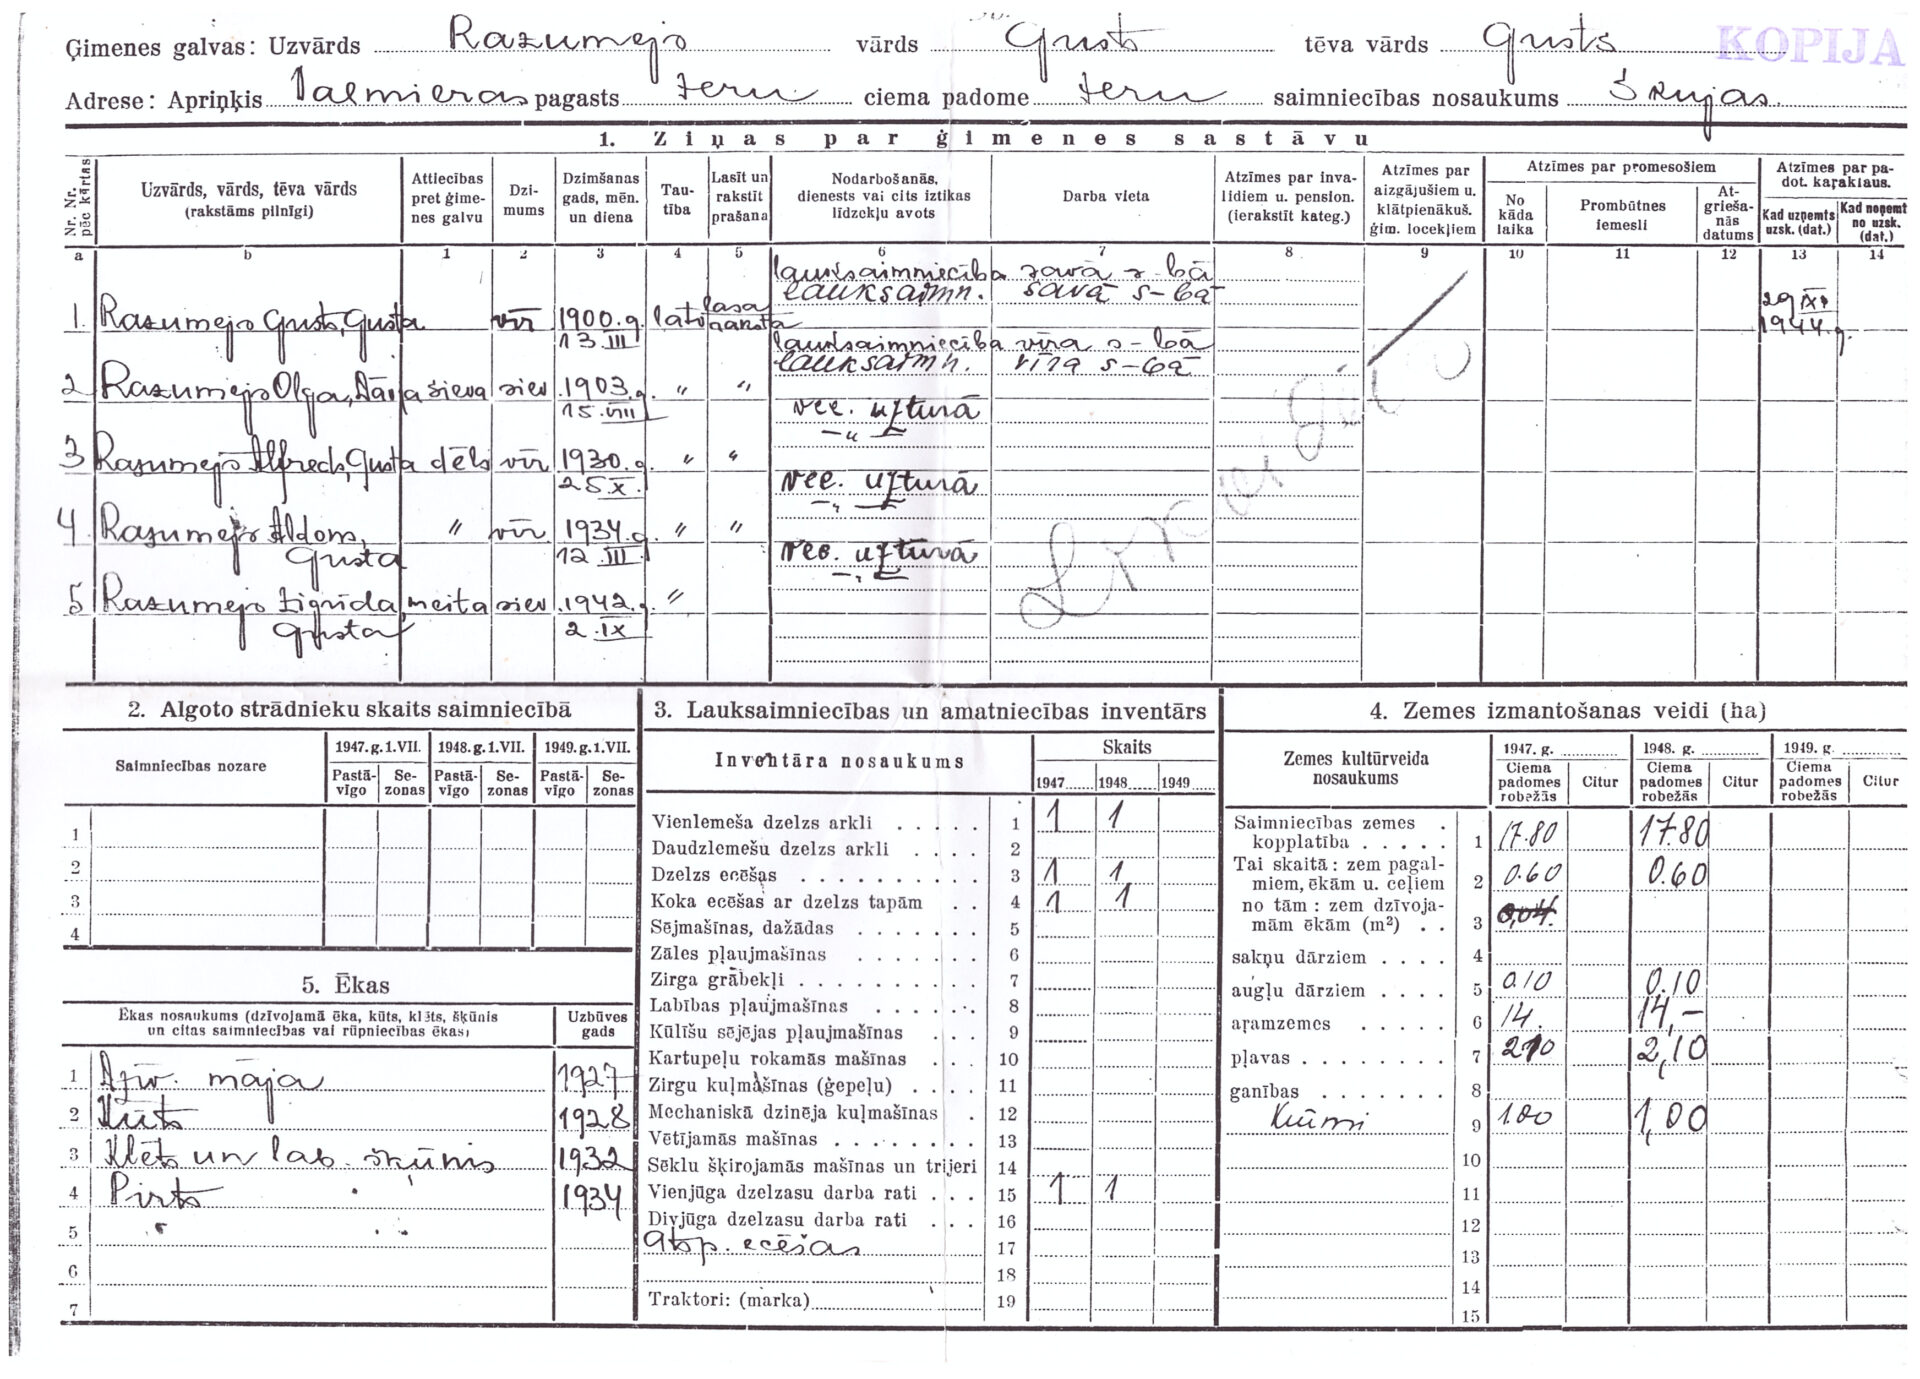 Ģimenes galvas: Uzvārds Razumejs vārds Gusts tēva vārds Gusts KOPIJA
Adrese: Apriņķis Valmieras pagasts Jeru ciema padome Jeru saimniecības nosaukums Skujas
1. Ziņas par ģimenes sastāvu
Nr. Nr. pēc kārtas
Uzvārds, vārds, tēva vārds (rakstāms pilnīgi)
Attiecības pret ģimenes galvu
Dzimums
Dzimšanas gads, mēn. un diena
Tautība
Lasīt un rakstīt prašana
Nodarbošanās, dienests vai cits iztikas līdzekļu avots
Darba vieta
Atzīmes par invalidiem u. pension. (ierakstīt kateg.)
Atzīmes par aizgājušiem u. klātpienākuš. ģim. locekļiem
Atzīmes par promesošiem
No kāda laika
Prombūtnes iemesli
Atgriešanās datums
Atzīmes par padot. kaŗaklaus.
Kad uzņemts uzsk. (dat.)
Kad noņemt no uzsk. (dat.)
a b 1 2 3 4 5 6 7 8 9 10 11 12 13 14
lauksaimniecība savā s-bā
lauksaimn. savā s-bā
1. Razumejs Gusts, Gusta vīr 1900.g. latv lasa raksta 29 XI 1944.g.
13.III
lauksaimniecība vīra s-bā
lauksaimn. vīra s-bā
2 Razumejs Olga, Dāvja sieva siev 1903.g. " "
15.VIII
vec. uzturā
- " -
3 Razumejs Alfreds, Gusta dēls vīr 1930.g. " "
25.X.
vec. uzturā
- " -
4 Razumejs Aldons, " vīr 1934.g. " "
Gusta 12.III
vec. uzturā
- " -
5 Razumejs Zigrīda, meita siev 1942.g. "
Gusta 2.IX
2. Algoto strādnieku skaits saimniecībā
Saimniecības nozare
1947. g. 1. VII. 1948. g. 1. VII. 1949. g. 1. VII.
Pastāvīgo Sezonas Pastāvīgo Sezonas Pastāvīgo Sezonas
1
2
3
4
5. Ēkas
Ēkas nosaukums (dzīvojamā ēka, kūts, klēts, šķūnis un citas saimniecības vai rūpniecības ēkas)
Uzbūves gads
1 Dzīv. māja 1927
2 Kūts 1928
3 Klēts un lab. šķūnis 1932
4 Pirts 1934
5
6
7
3. Lauksaimniecības un amatniecības inventārs
Inventāra nosaukums
Skaits
1947 1948 1949
Vienlemeša dzelzs arkli 1 1 1
Daudzlemešu dzelzs arkli 2
Dzelzs ecēšas 3 1 1
Koka ecēšas ar dzelzs tapām 4 1 1
Sējmašīnas, dažādas 5
Zāles pļaujmašīnas 6
Zirga grābekļi 7
Labības pļaujmašīnas 8
Kūlīšu sējējas pļaujmašīnas 9
Kartupeļu rokamās mašīnas 10
Zirgu kuļmašīnas (ģepeļu) 11
Mechaniskā dzinēja kuļmašīnas 12
Vētījamās mašīnas 13
Sēklu šķirojamās mašīnas un trijeri 14
Vienjūga dzelzasu darba rati 15 1 1
Divjūga dzelzasu darba rati 16
Atsp. ecēšas 17
18
Traktori: (marka) 19
4. Zemes izmantošanas veidi (ha)
Zemes kultūrveida nosaukums
1947. g. 1948. g. 1949. g.
Ciema padomes robežās Citur Ciema padomes robežās Citur Ciema padomes robežās Citur
Saimniecības zemes kopplatība 1 17.80 17.80
Tai skaitā: zem pagalmiem, ēkām u. ceļiem 2 0.60 0.60
no tām: zem dzīvojamām ēkām (m²) 3 0,04.
sakņu dārziem 4
augļu dārziem 5 0.10 0.10
aramzemes 6 14. 14,-
pļavas 7 2.10 2,10
ganības 8
Krūmi 9 1.00 1,00
10
11
12
13
14
15